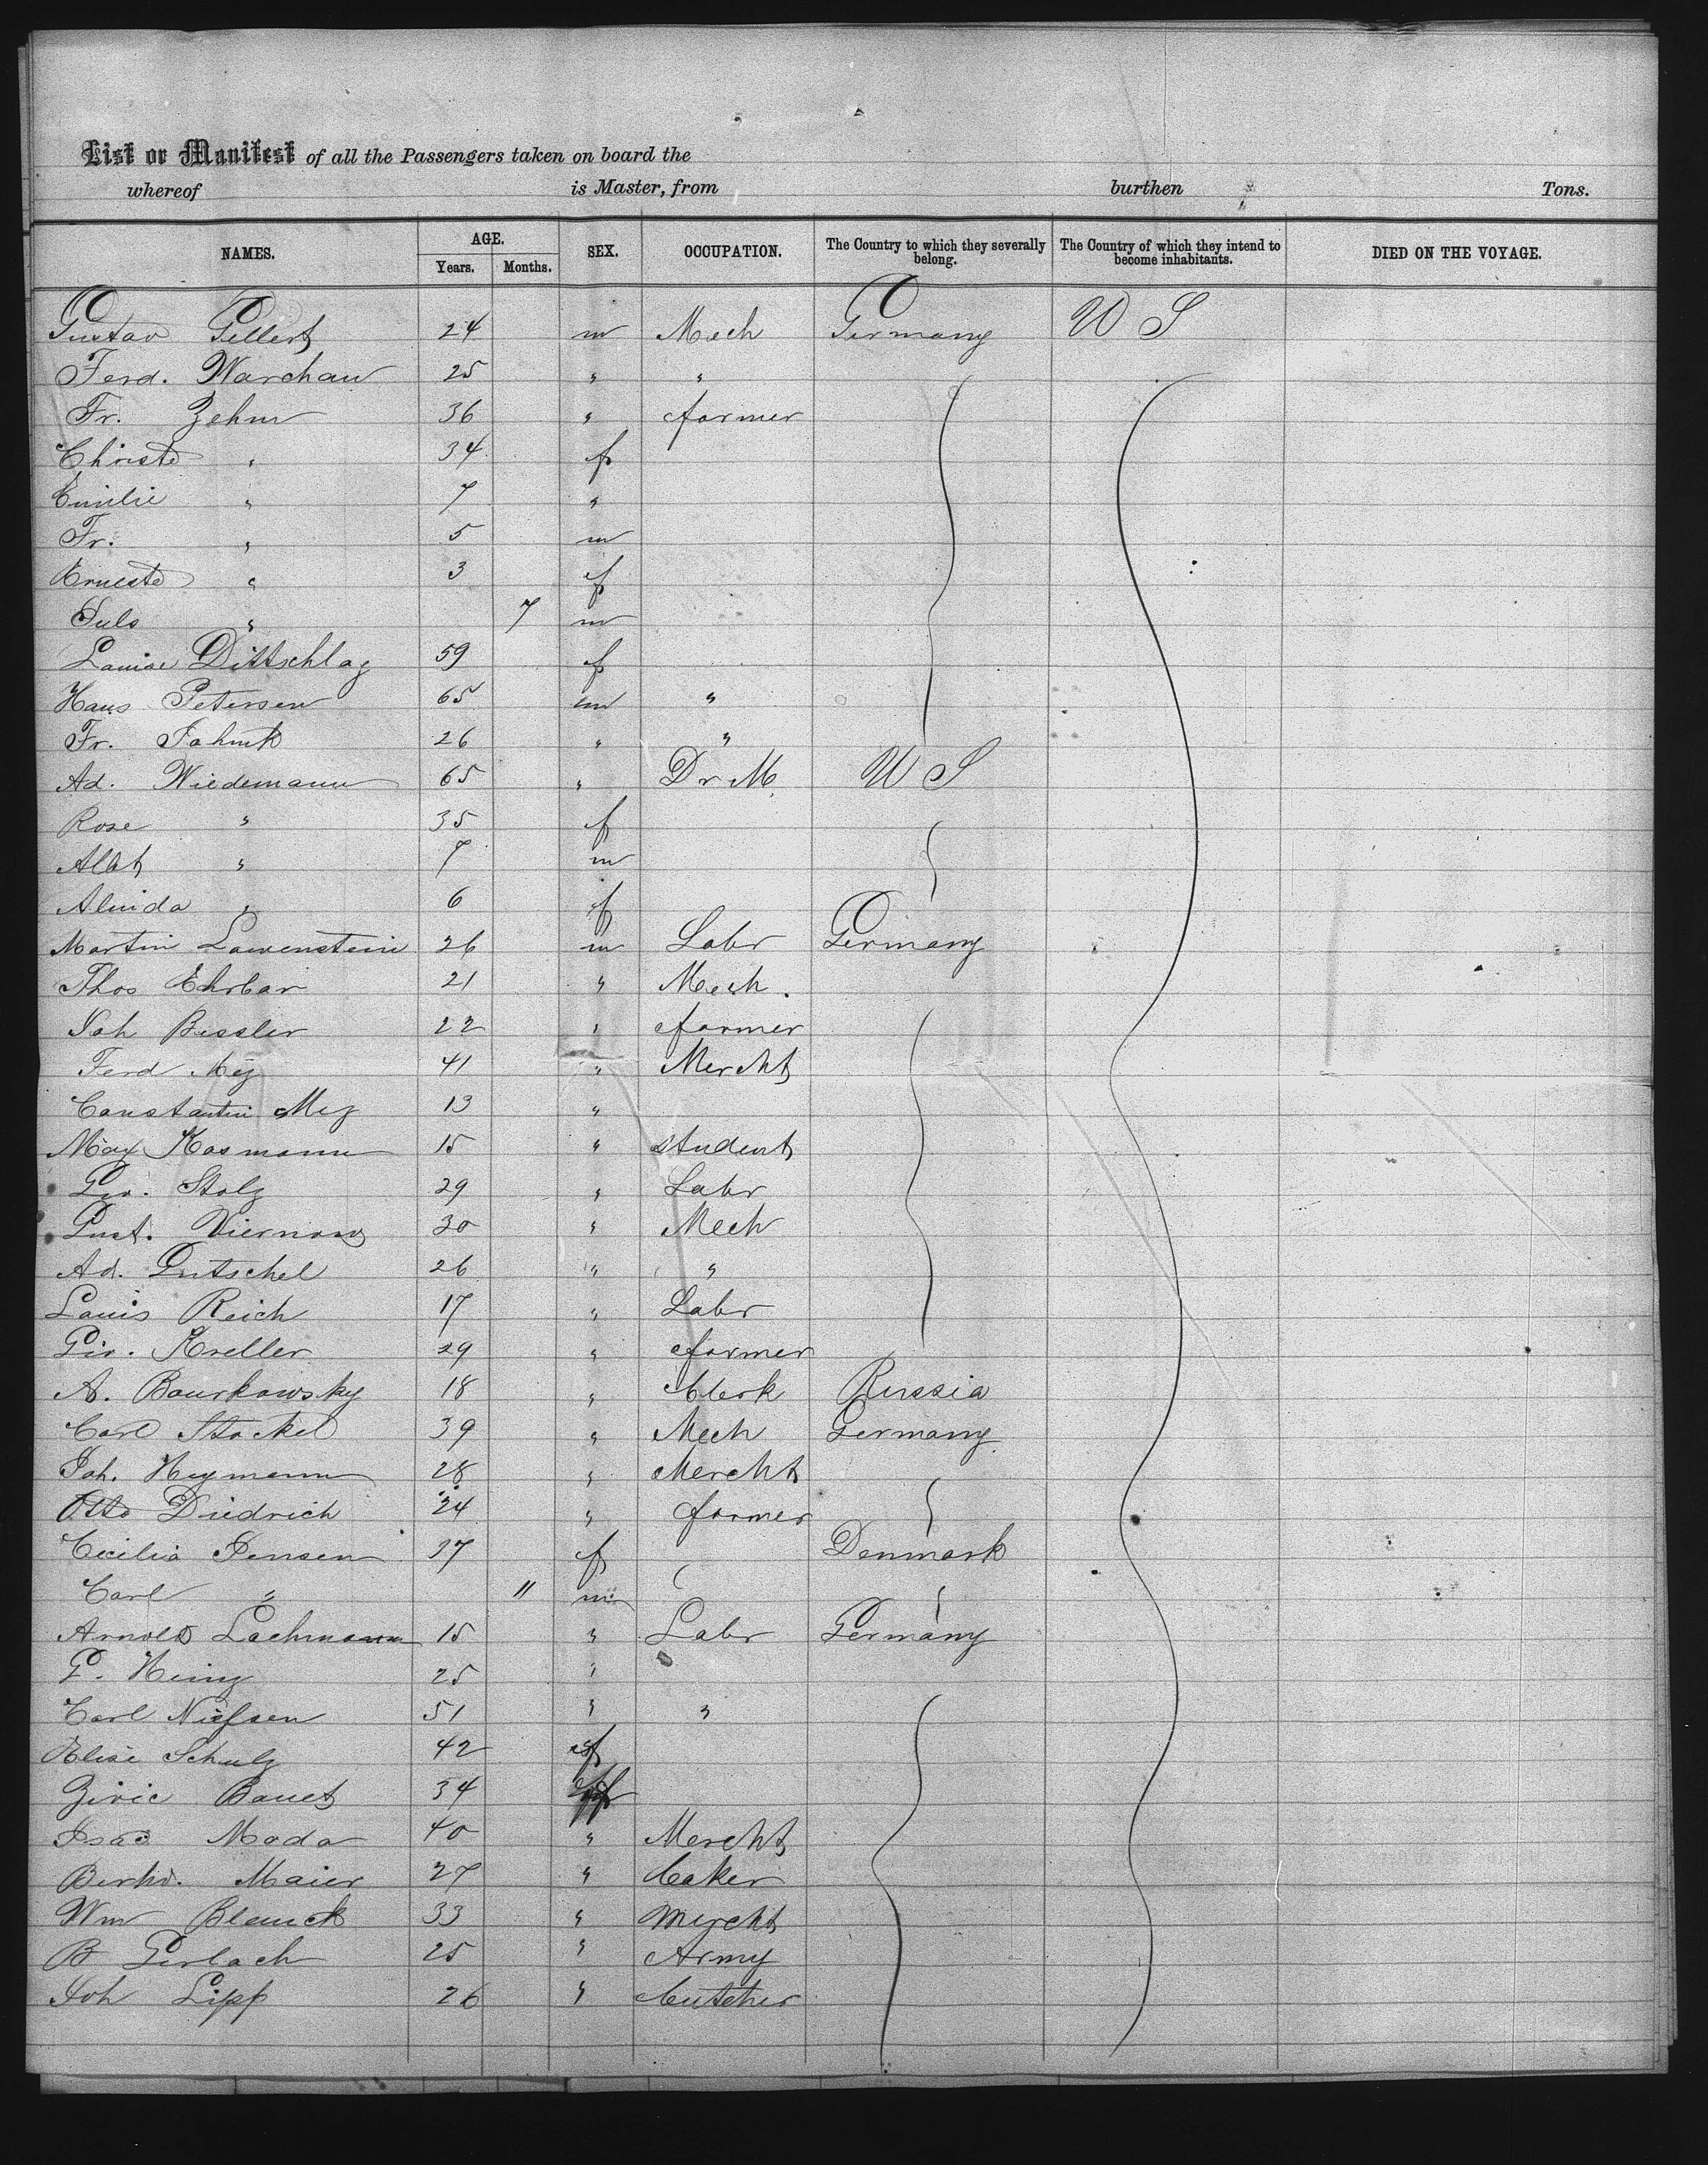 List or Manifest of all the Passengers taken on board the
whereof is Master, from burthen Tons.
NAMES. AGE. Years. Months. SEX. OCCUPATION. The Country to which they severally belong. The Country of which they intend to become inhabitants. DIED ON THE VOYAGE.
Gustav Gellert 24 m Mech Germany U S
Ferd. Warchau 25 " "
Fr. Zehm 36 " farmer
Christe " 34 f
Emilie " 7 "
Fr. " 5 m
Erneste " 3 f
Juls " 7 m
Louise Dittschlag 59 f
Hans Petersen 65 m "
Fr. Jahnk 26 " "
Ad. Wiedemann 65 " Dr M. U S
Rose " 35 f
Albt " 7 m
Alinda " 6 f
Martin Lowenstein 26 m Labr Germany
Thos Ehrbar 21 " Mech.
Joh Bessler 22 " farmer
Ferd Mey 41 " Mercht
Constantin Mey 13 "
Max Kosmann 15 " student
Geo. Stolz 29 " Labr
Gust. Viernow 30 " Mech
Ad. Gutschel 26 " "
Louis Reich 17 " Labr
Geo. Kreller 29 " farmer
A. Bourkowsky 18 " Clerk Russia
Carl Stockel 39 " Mech Germany
Joh. Heymann 28 " Mercht
Otto Diedrich 24 " farmer
Cecilia Jensen 37 f Denmark
Carl " 11 m
Arnold Lachmann 15 " Labr Germany
G. Heinz 25 "
Carl Nielsen 51 " "
Elise Schulz 42 f
Bauet 34
Isac Moda 40 " Mercht
Berhd. Maier 27 " baker
Wm Blanck 33 " Mercht
B Gerlach 25 " Army
Joh Lipp 26 " butcher